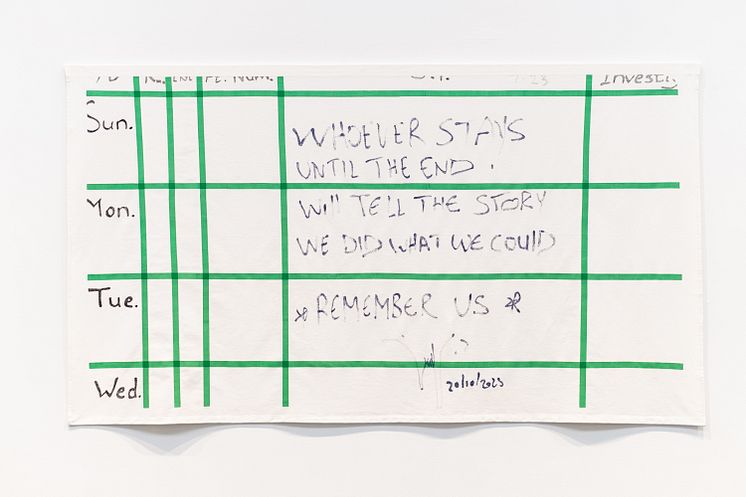 Num.
Investig
Sun.
WHOEVER STAYS
UNTIL THE END.
Mon.
Will TELL THE STORY
WE DID WHAT WE COULD
Tue.
*REMEMBER US*
Wed.
20/10/2023